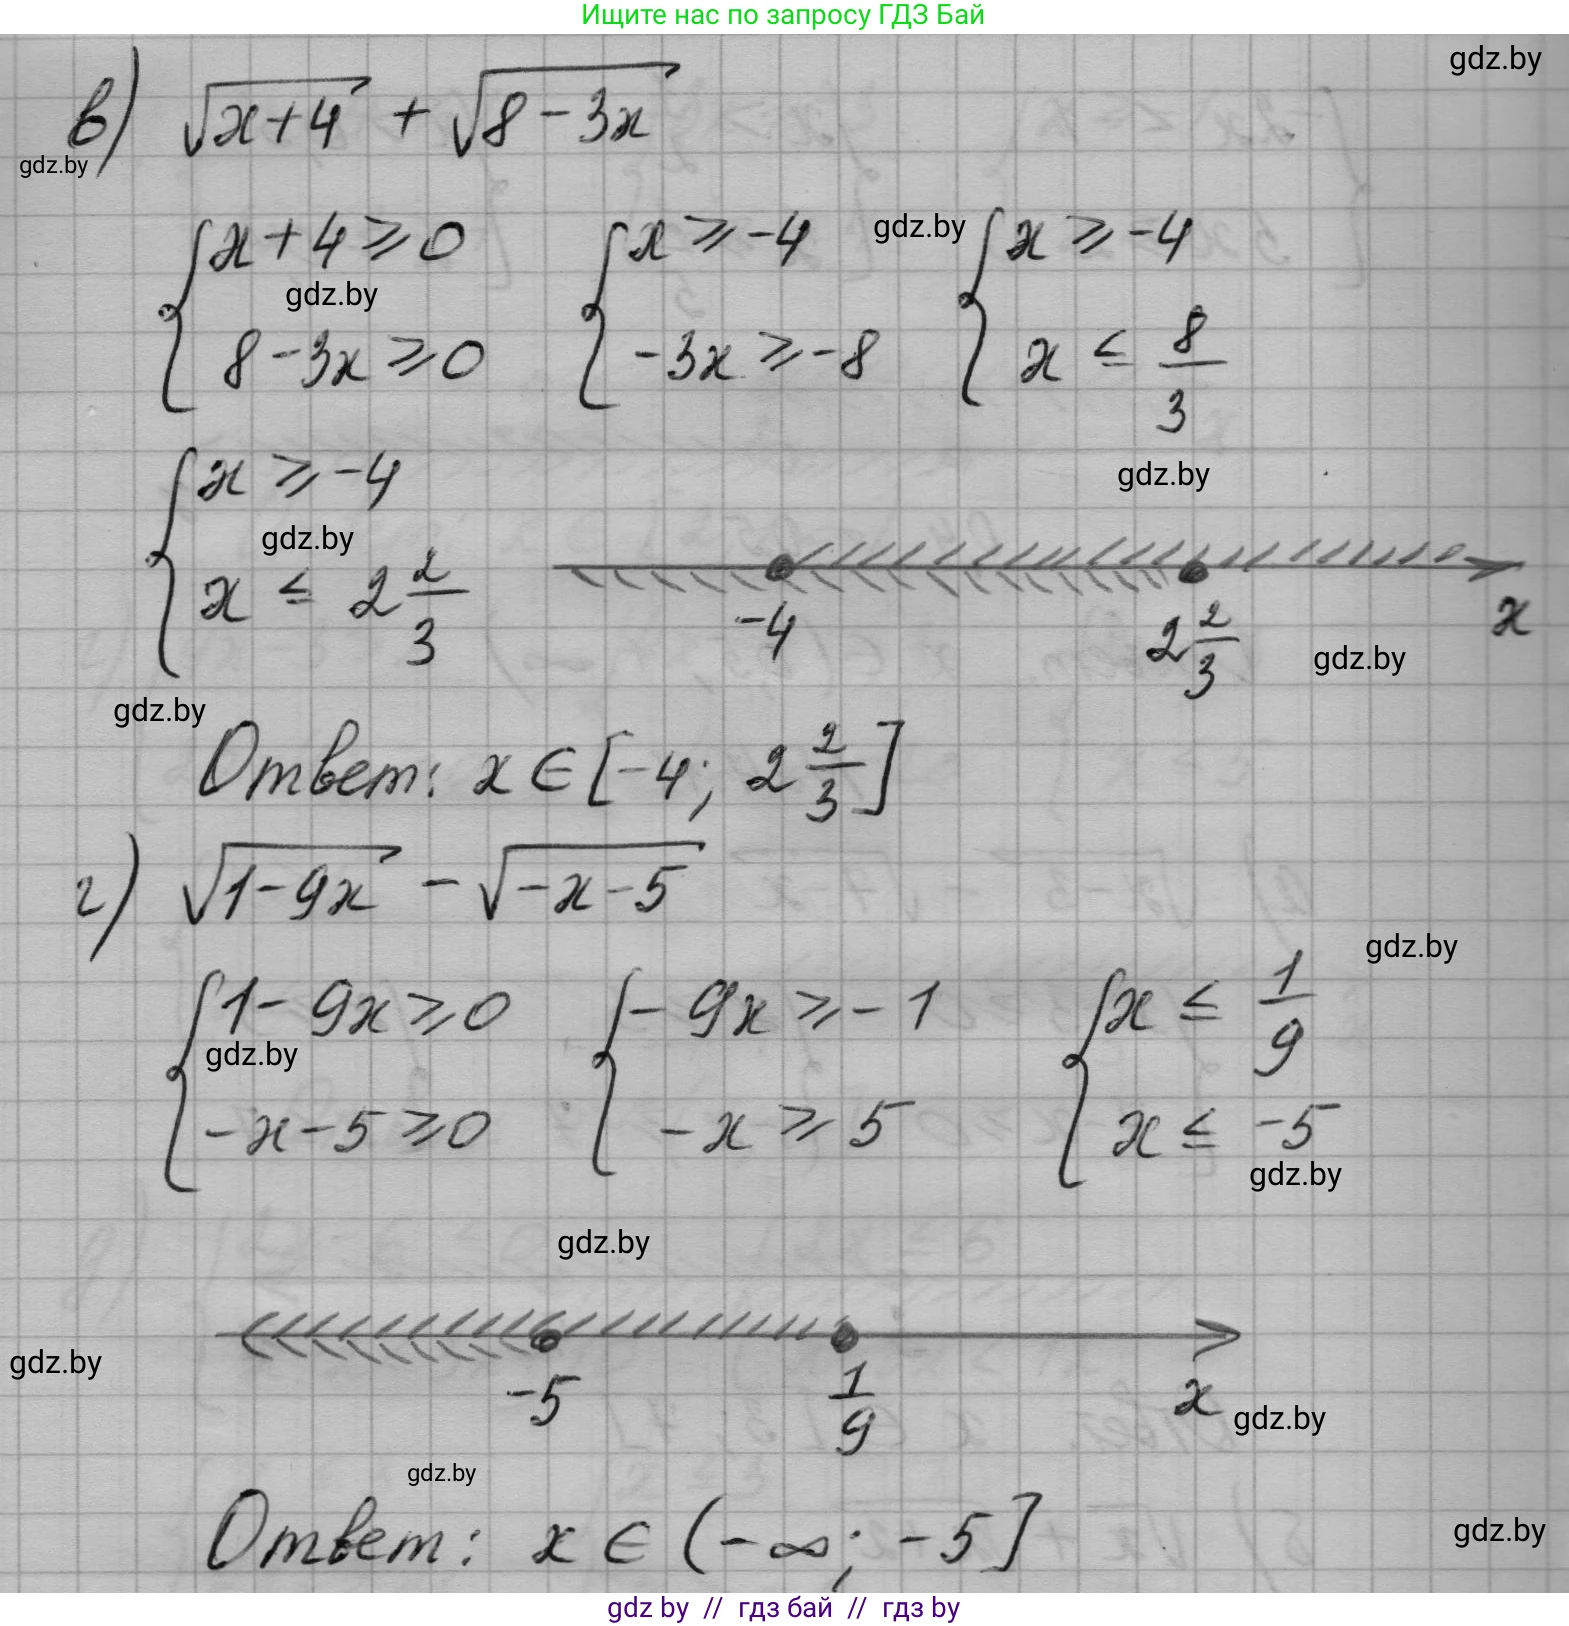 Ищите нас по запросу ГДЗ Бай
gdz.by
в) √(x+4) + √(8-3x)
gdz.by
{ x+4 ⩾ 0 { x ⩾ -4 gdz.by { x ⩾ -4
gdz.by
8-3x ⩾ 0 -3x ⩾ -8 x ≤ 8/3
{ x ⩾ -4 gdz.by
gdz.by
x ≤ 2 2/3
-4 2 2/3 x
gdz.by
gdz.by
Ответ: x ∈ [-4; 2 2/3]
г) √(1-9x) - √(-x-5)
gdz.by
{ 1-9x ⩾ 0 { -9x ⩾ -1 { x ≤ 1/9
gdz.by
-x-5 ⩾ 0 -x ⩾ 5 x ≤ -5
gdz.by
gdz.by
gdz.by
-5 1/9 x
gdz.by
gdz.by
Ответ: x ∈ (-∞; -5]
gdz.by
gdz by // гдз бай // гдз by